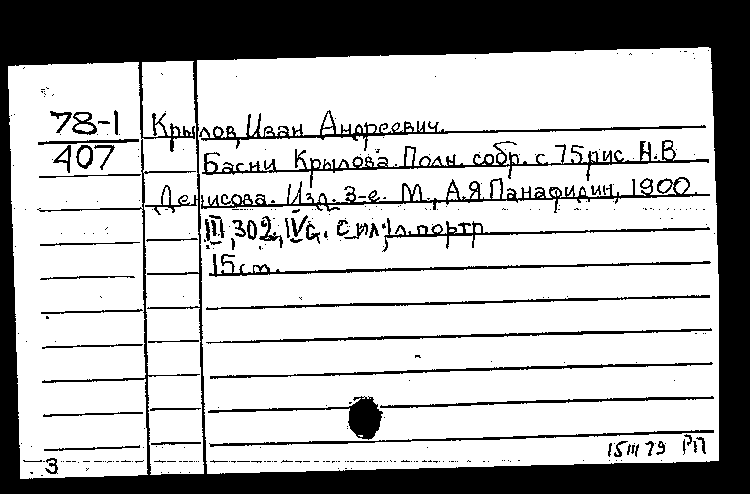 78-1 Крылов, Иван Андреевич.
407 Басни Крылова. Полн. собр. с 75 рис. Н.В
Денисова. Изд. 3-е. М., А.Я Панафидин, 1900.
III, 302, IV с. с ил., 1 л. портр
15 см.
15 III 79 РП
3